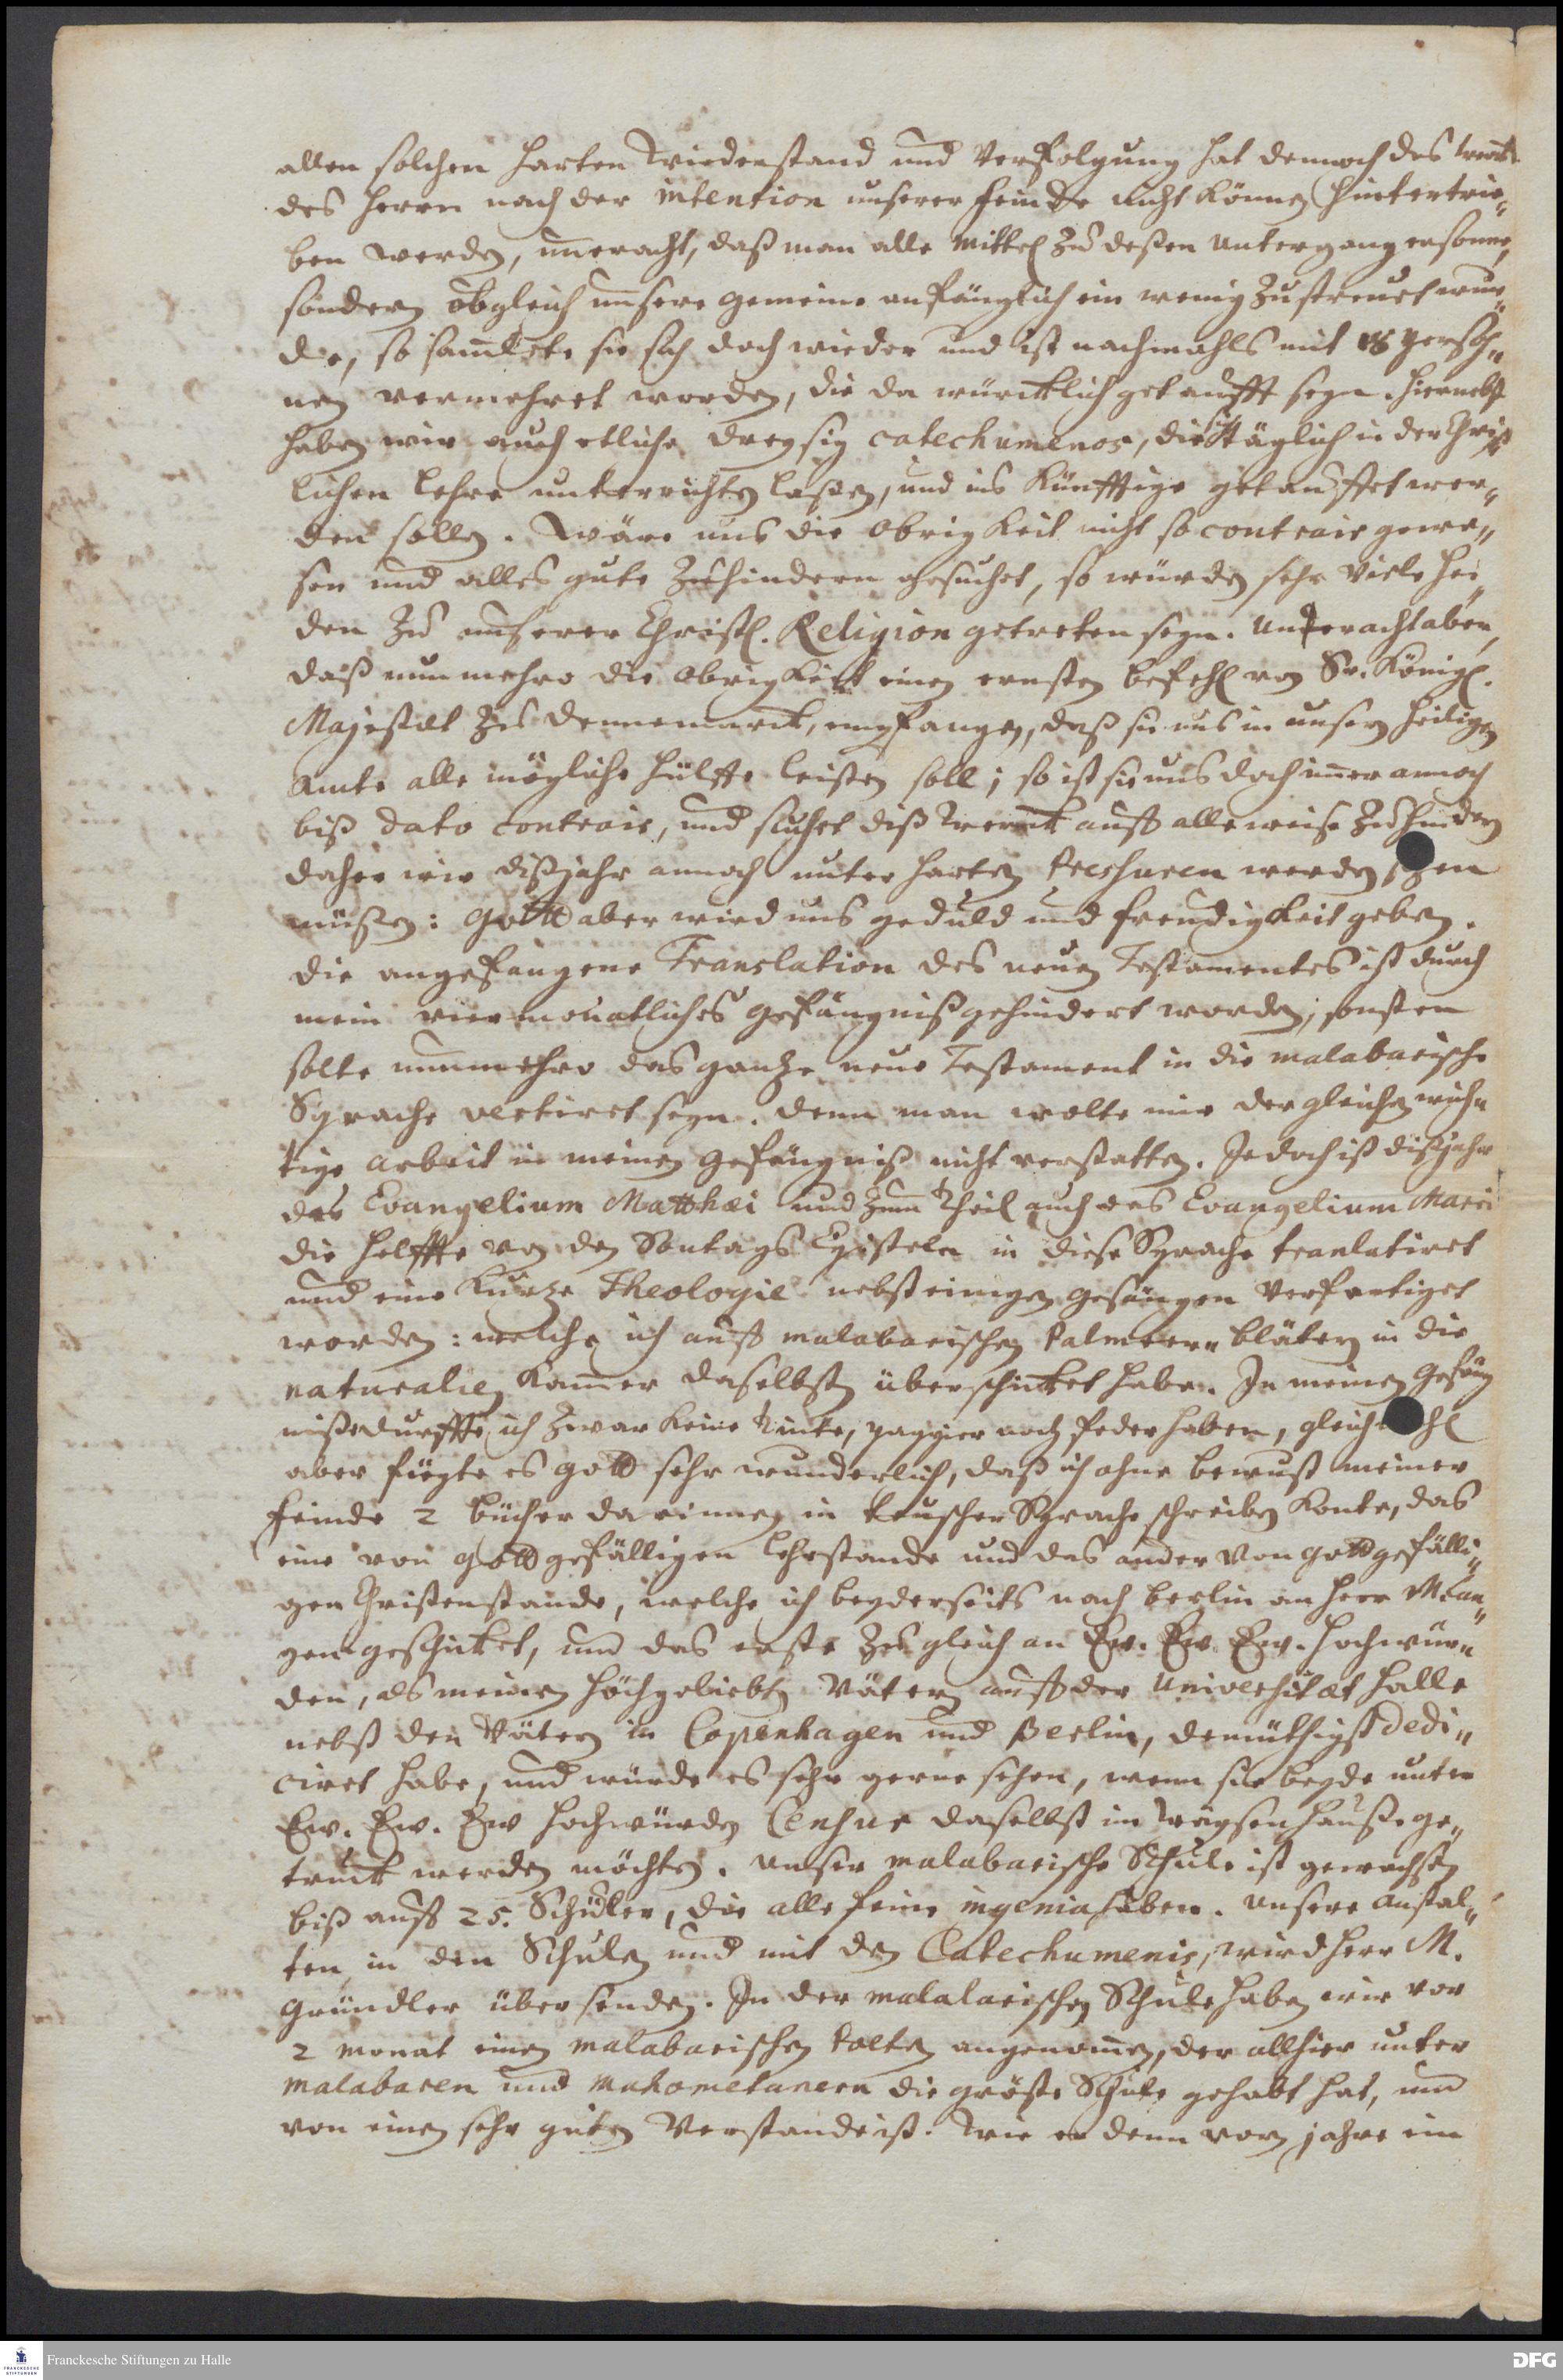 allen solchen harten Wiederstand und Verfolgung hat dennoch das werck
des Herrn nach der intention unserer Feinde nicht können hintertrie-
ben werden, uneracht, daß man alle Mittel zu deßen Untergang ersonne,
sondern obgleich unsere Gemeine anfänglich ein wenig zustreuet wur-
de, so samlete sie sich doch wieder und ist nachmahls mit Persoh-
nen vermehret worden, die da würcklich getaufft seyn. Hiernebst
haben wir auch etliche dreysig catechumenos, die sich täglich in der Christ-
lichen Lehre unterrichten laßen, und ins künfftige getauffet wer-
den sollen. Wäre uns die Obrigkeit nicht so contrair gewe-
sen und alles gute zu hindern gesuchet, so würden sehr viele Hei-
den zu unserer Christl. Religion getreten seyn. Unteracht aber,
daß nunmehro die Obrigkeit einen ernsten Befehl von Sr. Königl.
Majestät zu Dennemarck, empfangen, daß sie uns in unsern heiligen
Amte alle mögliche Hülffe leisten soll; so ist sie uns doch immer annoch
biß dato contrair, und suchet diß Werck auff alle weise zu hindern
daher wir diß jahr annoch unter harten Pressuren werden seyn
müßen: Gott aber wird uns geduld und freudigkeit geben.
Die angefangene Translation des neuen Testamentes ist durch
mein viermonatliches Gefängniß gehindert worden; sonsten
solte nunmehro das gantze neue Testament in die malabarische
Sprache vertiret seyn. Denn man wolte mir dergleichen wich-
tige Arbeit in meinen Gefängniß nicht verstatten. Jedoch ist diß jahr
das Evangelium Matthæi und zum Theil auch das Evangelium Marci
die Helffte von den Sontags Episteln in diese Sprache tranlatiret
und eine kurtze Theologie nebst einigen Gesängen verfertiget
worden: welche ich auff malabarischen Palmeern blätern in die
naturalien Kamer daselbsten überschicket habe. In meinen Gefäng
niße durffte ich zwar keine Tinte, pappier noch feder haben, gleichwohl
aber fügte es Gott sehr wunderlich, daß ich ohne bewust meiner
Feinde 2 Bücher darinnen in teuscher Sprache schreiben konte, das
eine von Gott gefälligen Lehrstande und das ander von Gott gefälli-
gen Christenstande, welche ich beyderseits nach Berlin an Herr M Lan-
gen geschicket, und das erste zugleich an Ew. Ew. Ew. Hochwür-
den, als meinen höchgeliebten Vätern auff der Universität Halle
nebst den Vätern in Copenhagen und Berlin, demüthigst dedi-
ciret habe, und würde es sehr gerne sehen, wenn sie beyde unter
Ew. Ew. Ew Hochwürden Censur daselbst im Wäysenhauße ge-
truckt werden möchten. Unser malabarische Schule ist gewachsen
biß auff 25. Schüler, die alle feine ingenia haben. Unsere Anstal-
ten in den Schulen und mit den Catechumenis, wird Herr M.
Gründler übersenden. In der malalarischen Schule haben wir vor
2 Monat einen malabarischen Poeten angenommen, der allhier unter
Malabaren und Mahometanern die gröste Schule gehabt hat, und
von einen sehr guten Verstande ist. Wie er denn vorn jahre ein
Franckesche Stiftungen zu Halle
DFG